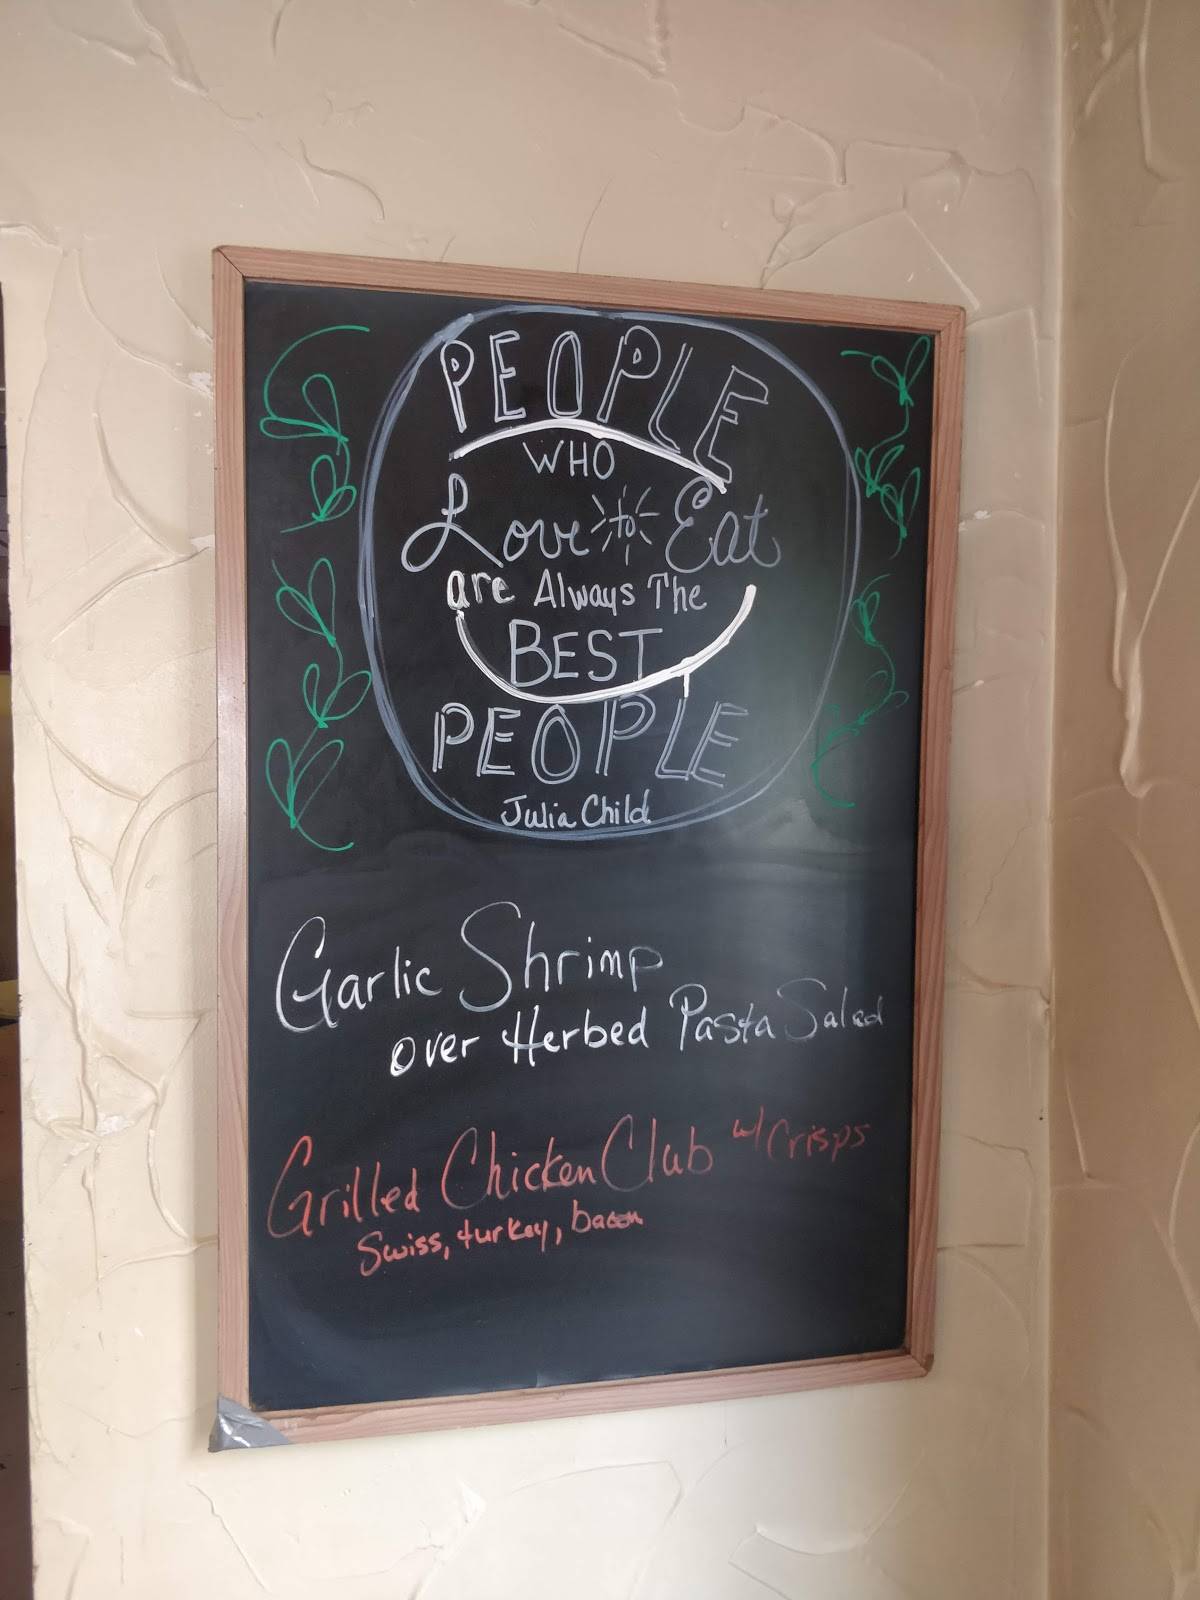 PEOPLE
WHO
Love to Eat
are Always The
BEST
PEOPLE
Julia Child
Garlic Shrimp
over Herbed Pasta Salad
Grilled Chicken Club w/ Crisps
Swiss, turkey, bacon